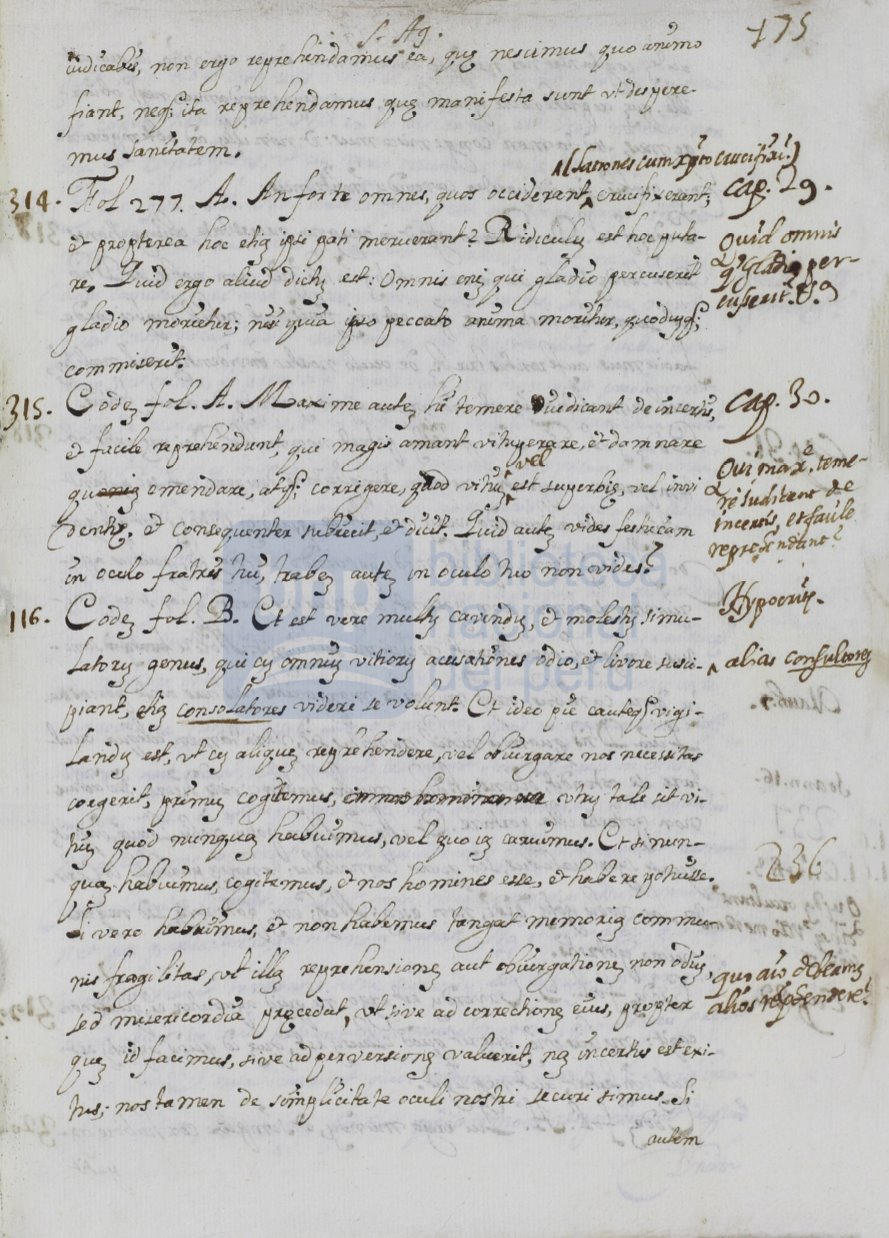 S. Ag.
175
iudicabis, non ergo reprehendamus ea, quę nescimus quo animo
fiant, neq; ita reprehendamus quę manifesta sunt vt despere-
mus sanitatem.
(latrones cum xp̃to crucifixi)
314. Fol 277. A. An forte omnes, quos occiderant, crucifixerant;
cap. 29.
et propterea hoc etiã ipsi pati meruerant? Ridiculũ est hoc puta-
re. Quid ergo aliud dictũ est: Omnis enĩ qui gladio percuserit
gladio morietur; nisi quia ipso peccato anima moritur, quodcũq;
commiserit.
Quid omnis
q̃ gladio per-
cuserit. &
315. Eodẽ fol. A. Maxime autẽ hi temere iudicant de incertis,
cap. 30.
et facile reprehendunt, qui magis amant vituperare, et damnare
quam emendare, atq; corrigere, quod vitiũ vel est superbię, vel invi
dentię. et consequenter subiecit, et dicit. Quid autẽ vides festucam
in oculo fratris tui, trabẽ autẽ in oculo tuo non vides?
Qui maxe. teme-
re iuditant de
incertis, et facile
reprẽndant
116. Eodẽ fol. B. Et est vere multũ cavendũ, et molestũ simu-
Hypocritę.
latorũ genus, qui cũ omniũ vitiorũ acusationes odio, et livore susci-
alias consultores
piant, etiã consolatores videri se volunt. Et ideo pie cauteq; vigi-
landũ est, vt cũ aliquẽ reprehendere, vel obiurgare nos necessitas
coegerit, primũ cogitemus, utrũ tale sit vi-
tiũ quod nunquã habuimus, vel quo iã caruimus. Et si nun-
quã habuimus, cogitemus, et nos homines esse, et habere potuisse.
236
Si vero habuimus, et non habemus tangat memoriã commu-
nis fragilitas, vt illã reprehensionẽ aut obiurgationẽ non odiũ,
sed misericordia pręcedat, vt sive ad correctionẽ eius, propter
quo aĩo debeamꝰ
alios rep̃hendere
quẽ id facimus, sive ad perversionẽ valuerit, nã incertus est exi-
tus; nos tamen de simplicitate oculi nostri securi simus. Si
autem